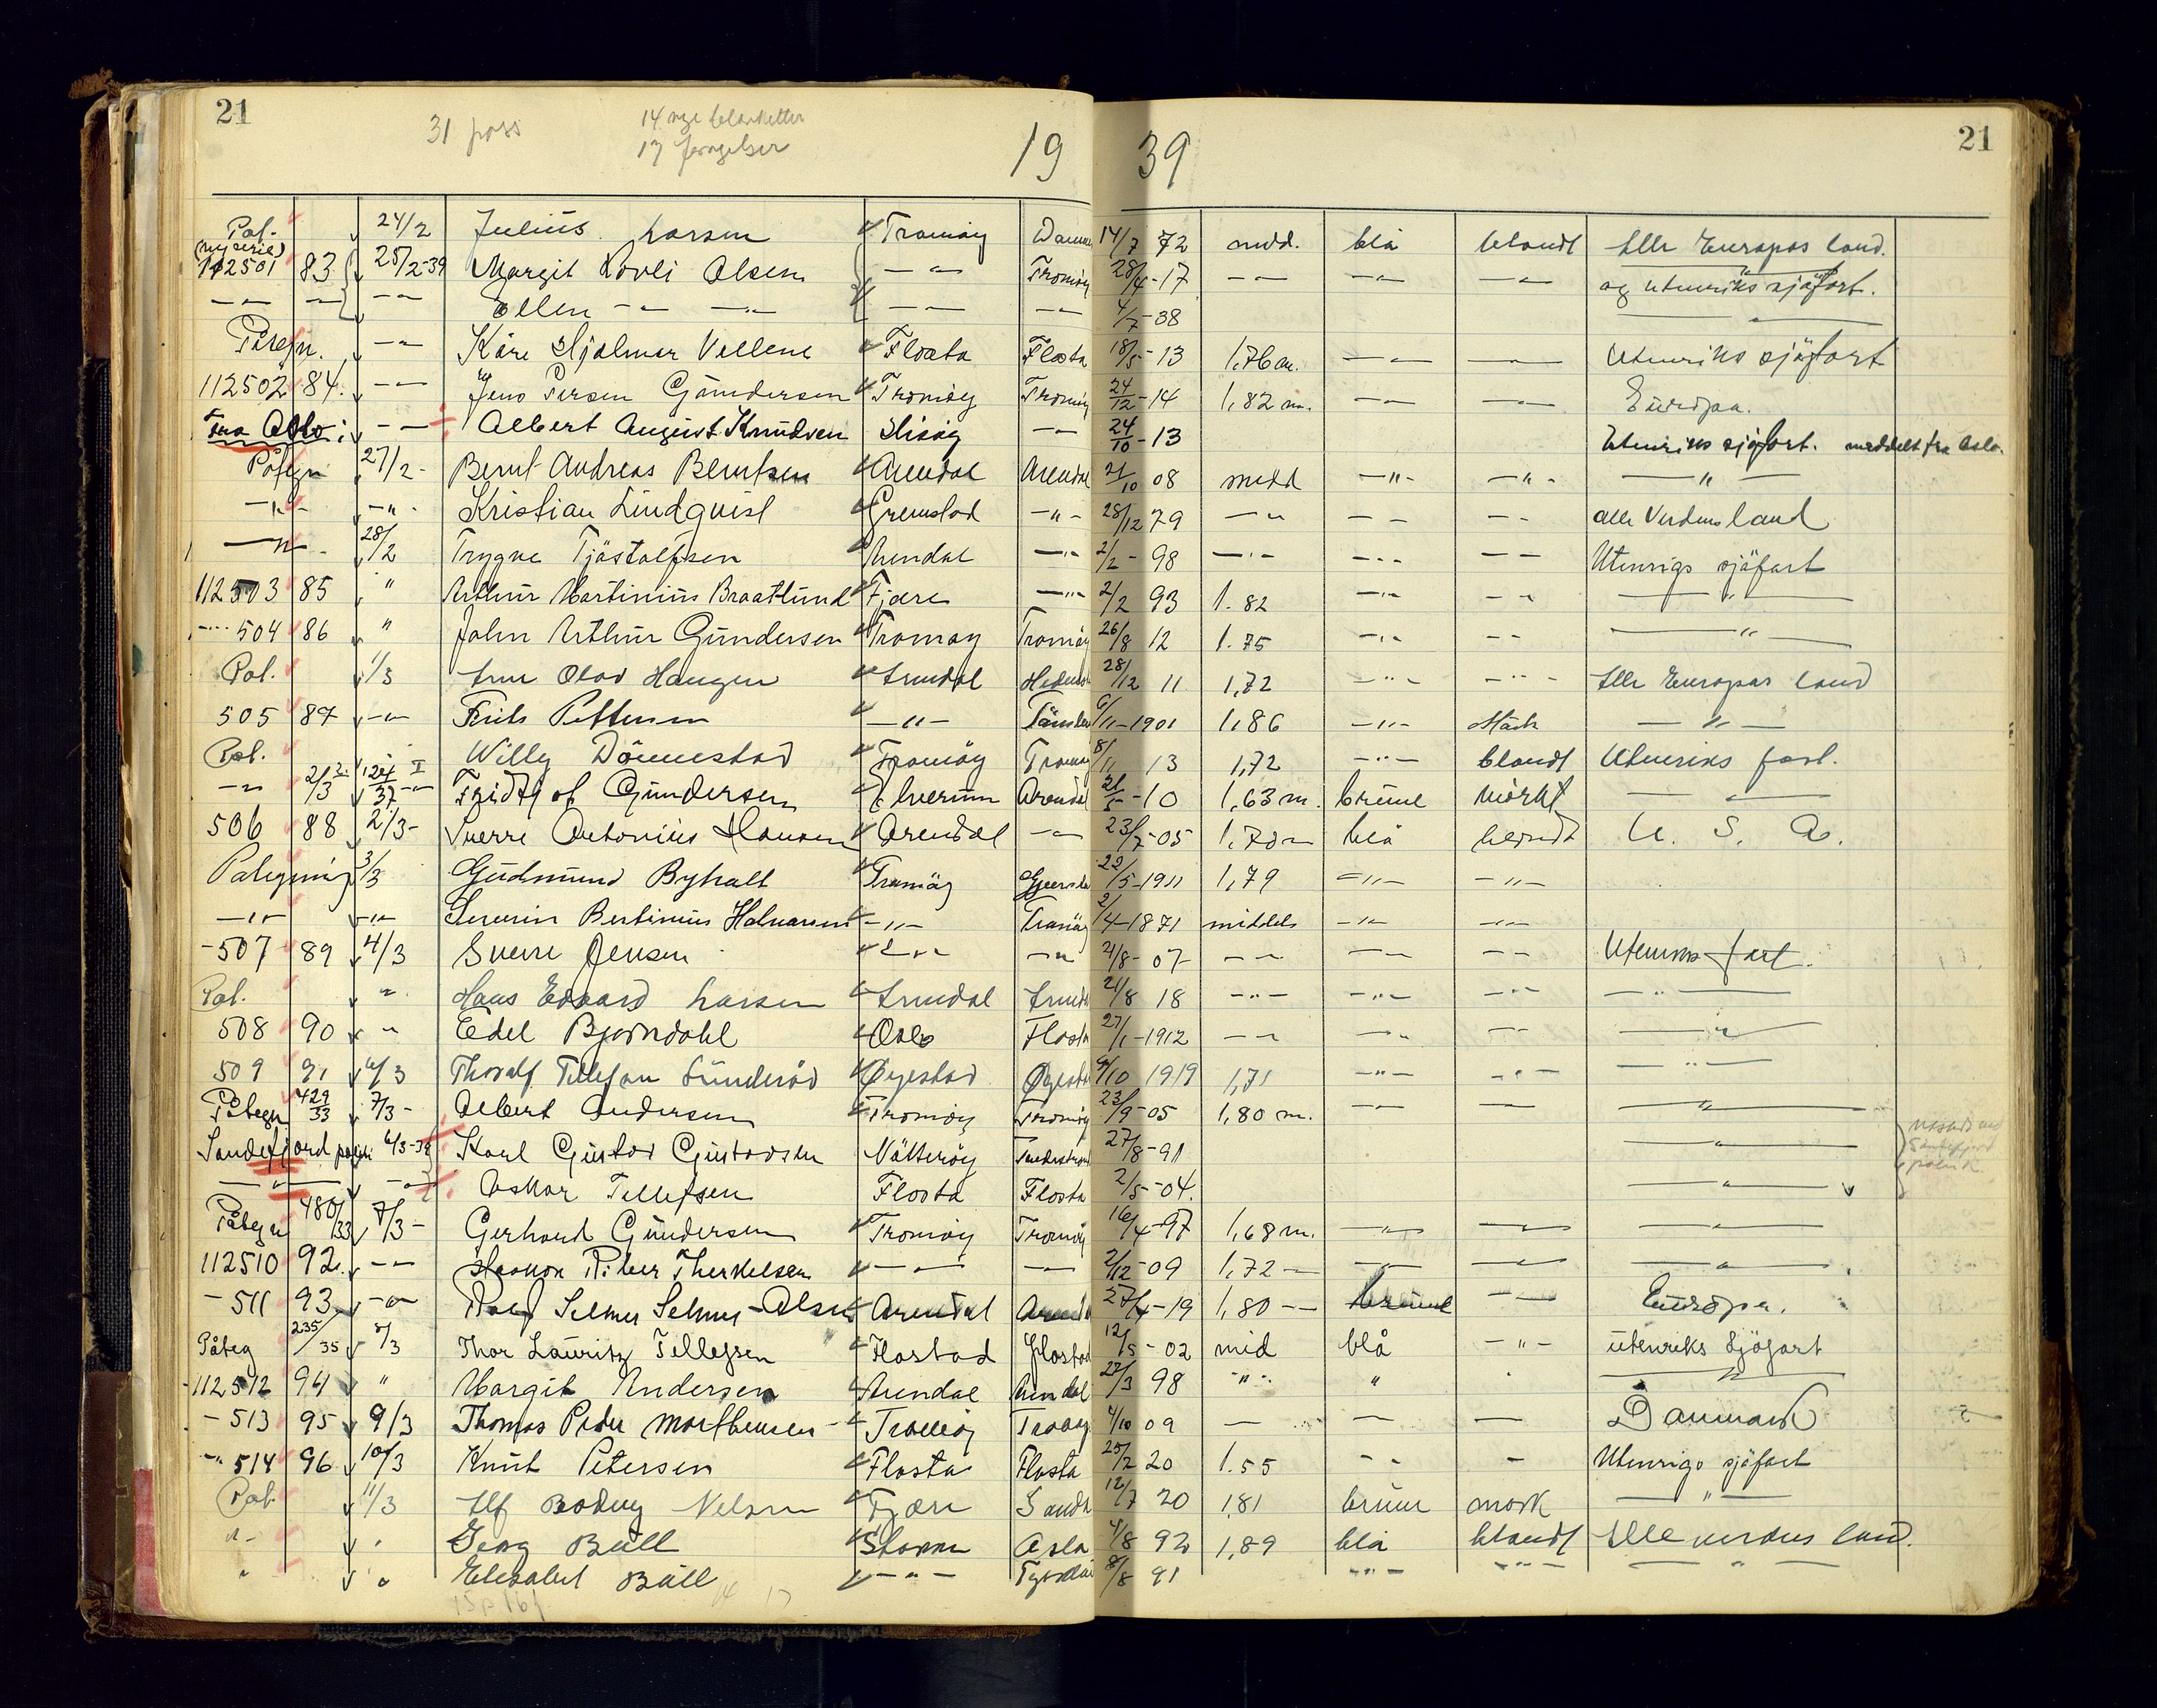 21
31 pass
14 nye blanketter
17 fornyelser
19 39
21
Pat. 24/2 Julius Larsen Tromøy 14/7 72 midd. blå blandt Alle Europas land.
(ny serie)
112501 83 25/2-39 Margit Lovli Olsen —„— Tromøy 28/4-17 —„— —„— —„— og utenriks sjøfart.
—„— —„— —„— Ellen —„— —„— —„— —„— 4/7-38 —„—
Påtegn. —„— Kåre Hjalmar Vellene Flosta Flosta 18/5-13 1,76 m. —„— —„— Utenriks sjøfart
112502 84. —„— Jens Persen Gundersen Tromøy Tromøy 24/12-14 1,82 m. —„— —„— Europa.
Fra Oslo: —„— Albert August Knudsen Hisøy —„— 24/10-13 Utenriks sjøfart. meddelt fra Oslo.
Påtegn 27/2- Bernt Andreas Berntsen Arendal Arendal 21/10 08 midd —„— —„— —„—
—„— —„— Kristian Lindquist Grimstad —„— 28/12 79 —„— —„— —„— alle Verdens land
—„— 28/2 Trygve Tjøstolfsen Arendal —„— 2/2- 98 —„— —„— —„— Utenrigs sjøfart
112503 85 „ Arthur Martinius Braatlund Fjære —„— 2/2 93 1.82 —„— —„— —„—
—„— 504 86 „ John Arthur Gundersen Tromøy Tromøy 26/8 12 1.75 —„— —„— —„—
Pat. 1/3 Arne Olav Haugen Arendal 28/12 11 1,72 —„— —„— Alle Europas land
505 87 —„— Frits Pettersen —„— 6/11-1901 1,86 —„— —„—
Pat. Willy Dömmestad Tromøy Tromøy 8/11 13 1,72 —„— blandt Utenriks fart.
—„— 2/3 Fridtjof Gundersen Elverum Arendal 21/5-10 1,63 m. brune mörkt —„—
506 88 2/3- Sverre Antonius Hansen Arendal —„— 23/7-05 1,70 m blå blandt U. S. A.
Pategning 3/3 Gudmund Byholt Tromøy 22/5-1911 1,79 —„— —„—
—„— —„— Severin Bertinius Halvorsen —„— Tromøy 2/4-1871 middels —„— —„—
-507 89 4/3 Sverre Jensen —„— —„— 21/8-07 —„— —„— —„— Utenriks fart.
Pat. „ Hans Edvard Larsen Arendal Arendal 21/8 18 —„— —„— —„— —„—
508 90 „ Edel Bjørndahl Oslo Flosta 27/1-1912 —„— —„— —„— —„—
509 91 6/3 Thoralf Tellefsen Sunderöd Øyestad Øyestad 9/10 1919 1,71 —„— —„— —„—
Påtegn 429/33 7/3- Albert Andersen Tromøy Tromøy 23/9-05 1,80 m. —„— —„— —„—
Sandefjord politi 6/3-39 Karl Gustav Gustavsen Nøtterøy 27/8-91 —„— Utstedt ved Sandefjord politik.
—„— —„— Oskar Tellefsen Flosta Flosta 2/5-04. —„—
Påtegn 480/33 7/3- Gerhard Gundersen Tromøy Tromøy 16/4-97 1,68 m. —„— —„— —„—
112510 92. —„— Haakon Riber Therkelsen —„— —„— 2/12-09 1,72 — —„— —„— —„—
-511 93 —„— Rolf Selmer Selmer-Olsen Arendal Arendal 27/4-19 1,80 —„— brune —„— Europa.
Påteg 235/35 8/3 Thor Lauritz Tellefsen Flostad Flostad 12/5-02 mid blå —„— utenriks Sjöfart
-112512 94 „ Margit Andersen Arendal Arendal 22/3 98 —„— „ —„—
-513 95 9/3 Thomas Peder Morthensen Tromøy Tromøy 4/10 09 — — — Danmark
-„ 514 96 10/3 Knut Petersen Flosta Flosta 25/2 20 1.55 —„— — Utenrigs sjøfart
Pat. 11/3 Alf Nelson Fjære 12/7 20 1,81 brune mørk —„—
„- „ Georg Bull Oslo 4/8 92 1,89 blå blandt Alle verdens land.
„ „ Elisabet Bull —„— 8/8 91 —„— —„— —„—